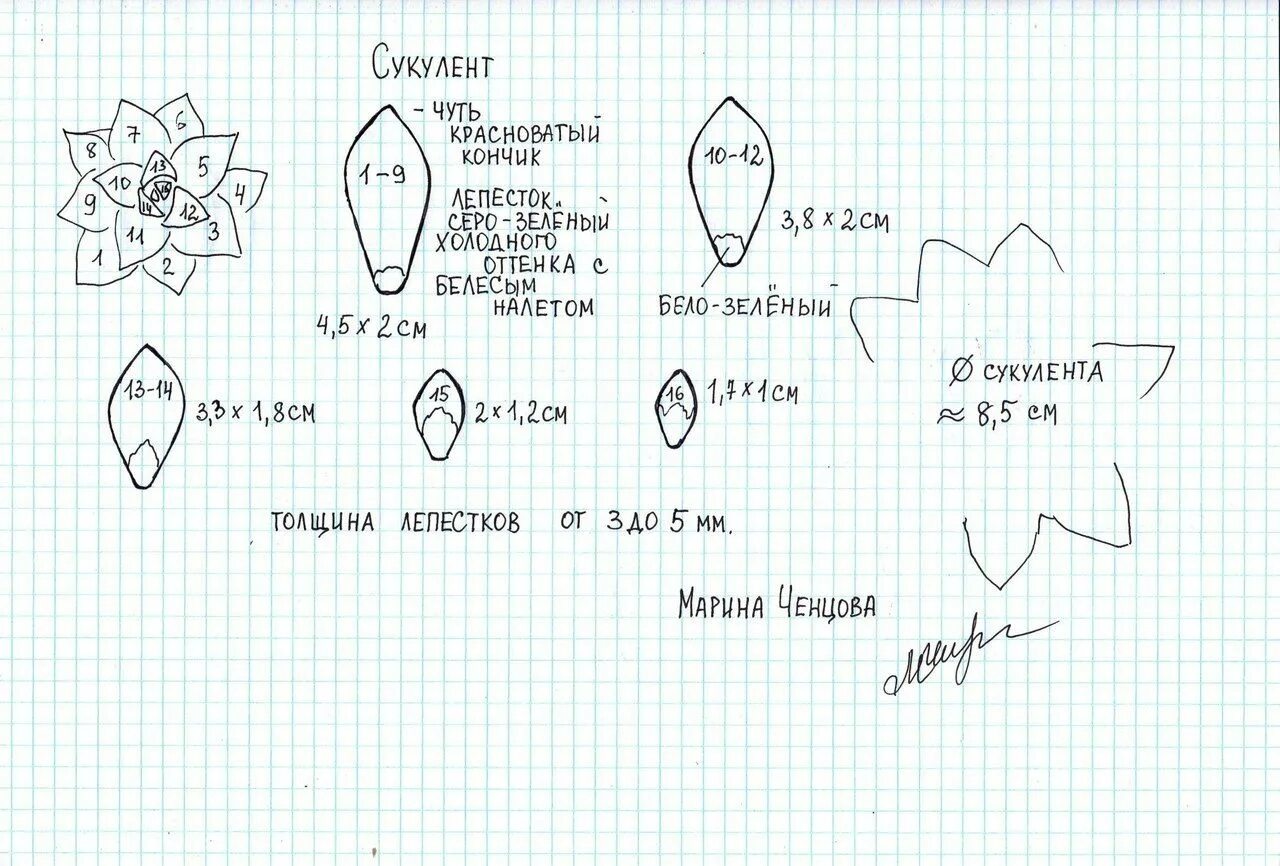 Сукулент
- чуть
красноватый
кончик
1-9
лепесток
серо-зелёный
холодного
оттенка с
белесым
налетом
4,5 x 2 см
10-12
3,8 x 2 см
бело-зелёный
7
6
8
13
5
10
4
9
16
14
12
11
3
1
2
13-14
3,3 x 1,8 см
15
2 x 1,2 см
16
1,7 x 1 см
Ø сукулента
≈ 8,5 см
толщина лепестков от 3 до 5 мм.
Марина Ченцова